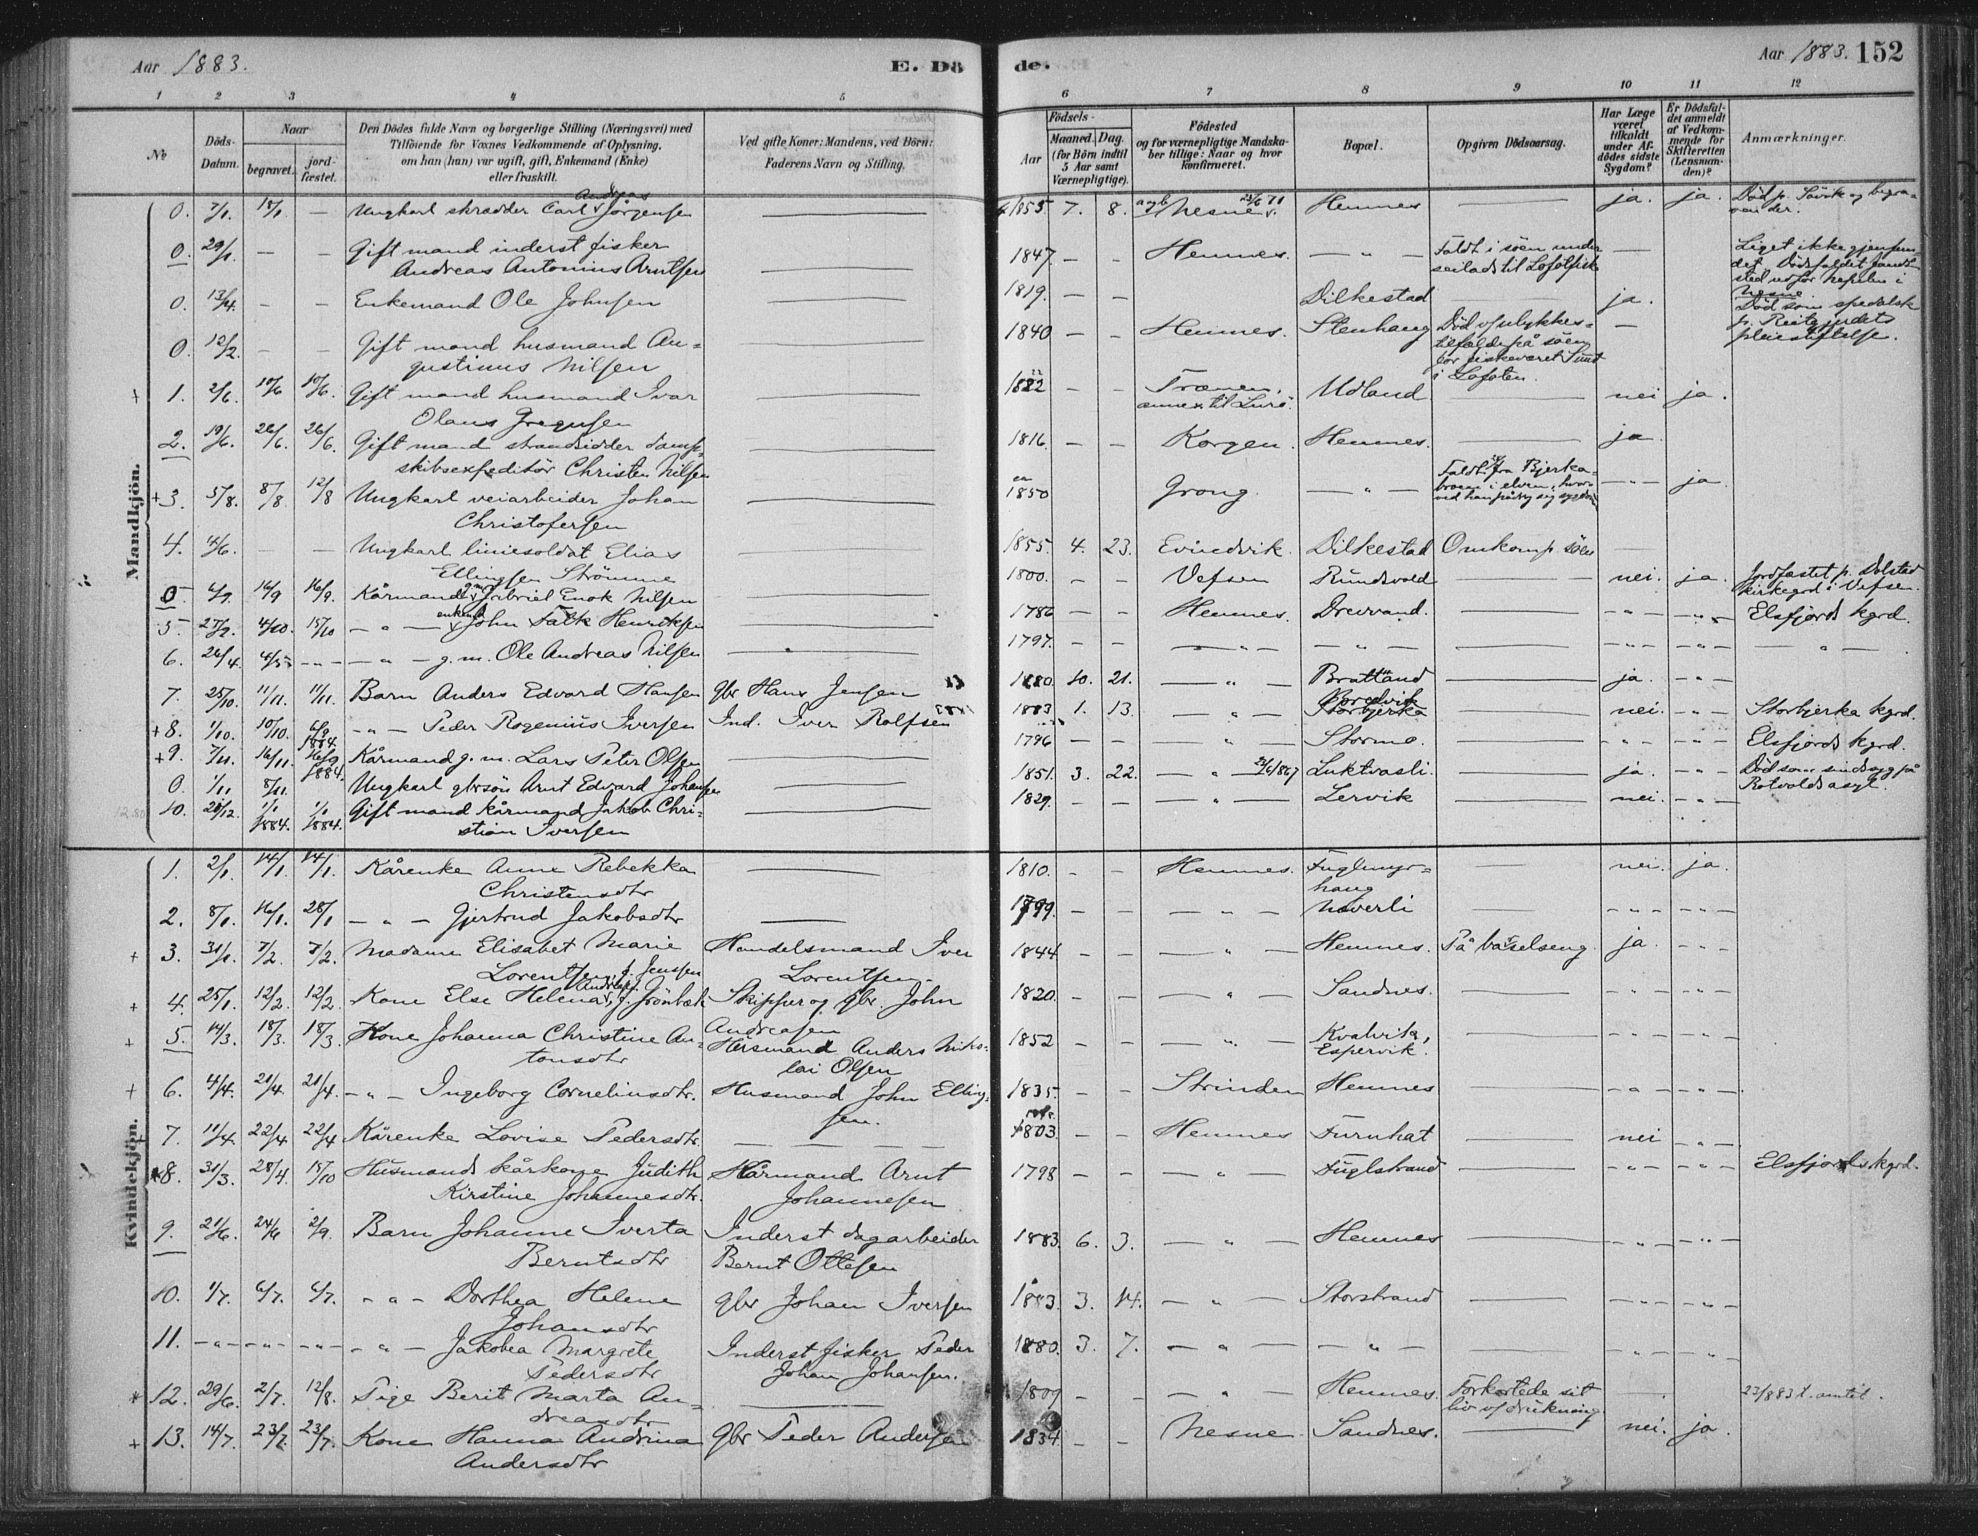 Aar 1883. E. Dö
de. Aar 1883. 152
1 2 3 4 5
6 7 8 9 10 11 12
No Döds-Datum. Naar begravet. jordfæstet. Den Dödes fulde Navn og borgerlige Stilling (Næringsvei) med Tilföiende for Voxnes Vedkommende af Oplysning, om han (hun) var ugift, gift, Enkemand (Enke) eller fraskilt. Ved gifte Koner: Mandens, ved Börn: Faderens Navn og Stilling.
Aar Födsels- Maaned. Dag. (for Börn indtil 5 Aar samt Værnepligtige). Födested og for værnepligtige Mandskaber tillige: Naar og hvor konfirmeret. Bopæl. Opgiven Dödsaarsag. Har Læge været tilkaldt under Afdödes sidste Sygdom? Er Dödsfaldet anmeldt af Vedkommende for Skifteretten (Lensmanden)? Anmærkninger.
Mandkjön.
0. 7/1. 18/1 — Ungkarl skrædder Carl Andreas Jörgensen — 1855 7. 8. Nesne Hemnes — ja. ja. Död p. Sövik og begraven der.
0. 29/1. — — Gift mand inderst fisker
Andreas Antonius Arntsen — 1847 — — Hemnes. — " — Faldt i söen under seilads til Lofotfisk — Liget ikke gjenfundet. Dödsfaldet fandt sted udfor Nesne
0. 13/4. — — Enkemand Ole Johnsen — 1819. — — Dilkestad — ja. Död som spedalsk p. Reitgjerdets pleiestiftelse.
0. 12/2. — — Gift mand husmand Augustinus Nilsen 1840 — — Hemnes. Stenhaug Död v/ ulykkestilfælde på söen for fiskeværet Sund i Lofoten. —
1. 2/6. 10/6 10/6. Gift mand husmand Ivar
Olaus Gregusen — 1822 — — Trænen, annex til Lurö. Udland — nei ja.
2. 19/6. 26/6. 26/6. Gift mand strandsidder dampskibsexpeditör Christen Nilsen 1816. — — Korgen. Hemnes. — ja.
+3. 5/8. 8/8 12/8 Ungkarl veiarbeider Johan
Christofersen — 1850 Grong. — " — Faldt fra Bjerkabroen i elven, hvorved han pådrog sig — " — ja.
4. 4/6. — — Ungkarl liniesoldat Elias
Ellingsen Strömme — 1855. 4. 23. Evindvik. Dilkestad Omkom p. söen —
0. 4/9. 16/9 16/9. Kårmand g.m. Gabriel Enok Nilsen — 1800. — — Vefsen Rundsvold — nei. ja. Jordfæstet p. Dolstad kirkegrd i Vefsen.
5. 27/9. 4/10. 15/10 — " — enkemd John Falk Henriksen — 1786 — — Hemnes. Drevvand. — — " — — " — Elsfjords kgrd.
6. 26/4. 4/5 — " — — " — g.m. Ole Andreas Nilsen — 1797. — — — " — — " — — " — — " — — " —
7. 25/10. 11/11. 11/11. Barn Anders Edvard Hansen gbr Hans Jensen 1880. 10. 21. — " — Brattland — ja. — " —
+8. 1/10. 10/10. 1884. — " — Peder Rogenius Iversen Ind. Iver Rolfsen 1883 1. 13. — " — Bredvik — nei. — " — Storbjerka kgrd.
+9. 7/11. 16/11. 1884. Kårmand g.m. Lars Peter Olsen — 1796 — — — " — Stormo. — — " — — " — Elsfjords kgrd.
0. 1/11 8/11. Ungkarl gbrsön Arnt Edvard Johansen — 1851. 3. 22. — " — Luktvasli. — ja. — " — Död som sindssyg på Rotvolds asyl.
10. 28/12. 1/1 1884. 1/1 1884. Gift mand kårmand Jakob Christian Iversen — 1829. — — — " — Lervik — nei. — " —
Kvindekjön.
1. 2/1. 14/1. 14/1. Kårenke Anne Rebekka
Christensdtr — 1810. — — Hemnes. Fuglemyrhaug — nei. ja.
2. 8/1. 16/1. 28/1 — " — Gjertrud Jakobsdtr — 1799. — — — " — Neverli — — " — — " —
+ 3. 31/1. 7/2. 7/2. Madame Elisabet Marie
Lorentsen, f. Jenssen Handelsmand Iver Lorentsen. 1844 — — — " — Hemnes. På barselseng. ja. — " —
+ 4. 25/1. 12/2. 12/2. Kone Else Helena Andreas. f. Grönbek Skipper og gbr. John Andreasen 1820. — — — " — Sandnes. — — " — — " —
+ 5. 14/3. 18/3. 18/3. Kone Johanna Christine Antonsdtr Husmand Anders Nikolai Olsen 1852 — — — " — Kvalvik, Espervik. — — " — — " —
+ 6. 4/4. 21/4. 21/4. — " — Ingeborg Corneliusdtr. Husmand John Ellingsen. 1835. — — Strinden Hemnes — — " — — " —
+ 7. 11/4. 22/4 22/4 Kårenke Lovise Pedersdtr. — 1803. — — Hemnes Furuhat — nei — " —
8. 31/3. 28/4. 15/10 Husmands kårkone Judith
Kirstine Johannesdtr. Kårmand Arnt Johannesen 1798 — — — " — Fuglstrand — — " — — " — Elsfjords kgrd.
9. 21/6. 24/6 2/9. Barn Johanne Iverta
Berntsdtr Inderst dagarbeider Bernt Ottesen 1883. 6. 3. — " — Hemnes — — " — — " —
10. 1/7. 6/7. 6/7. — " — Dorthea Helene
Johansdtr gbr Johan Iversen 1883. 3. 14. — " — Storstrand — — " — — " —
11. — " — — " — — " — — " — Jakobea Margrete
Pedersdtr Inderst fisker Peder Johan Johansen. 1880. 3. 7. — " — — " — — " — — " —
12. 29/6. 2/7. 12/8. Pige Berit Marta Andreasdtr — 1809 — " — Hemnes. Forkortede sit liv v/ drukning — 23/8 83 t. amtet.
+ 13. 14/7. 23/7. 23/7. Kone Hanna Andrina
Andersdtr gbr Peder Andersen 1834 — — Nesne Sandnes. — nei. ja.